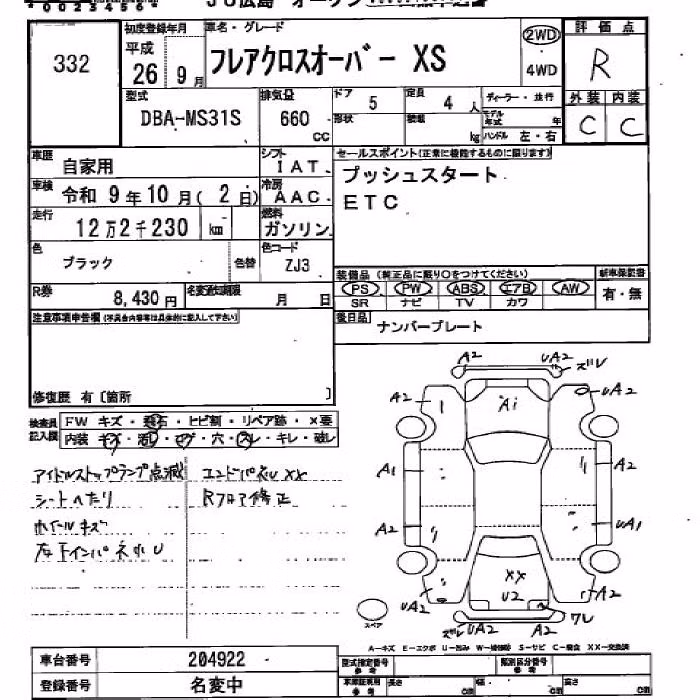 332
初度登録年月
平成
26年 9月
車名・グレード
フレアクロスオーバー XS
2WD
4WD
評価点
R
外装 内装
C C
型式
DBA-MS31S
排気量
660 CC
ドア 5
定員 4 人
形状
積載 kg
ディーラー・並行
モデル年式 年
ハンドル 左・右
車歴 自家用
シフト IAT
車検 令和 9年10月( 2 日)
冷房 AAC
走行 12万2千230 km
燃料 ガソリン
色 ブラック
色替
色コード ZJ3
R券 8,430円
名変通知期限 月 日
セールスポイント(正常に機能するものに限ります)
プッシュスタート
ETC
装備品 (純正品に限り〇をつけてください)
新車保証書
PS PW ABS エアB AW
SR ナビ TV カワ
有・無
後日品
ナンバープレート
注意事項申告欄 (不具合内容等は具体的に記入して下さい)
修復歴 有〔箇所 〕
検査員記入欄
FW キズ・飛石・ヒビ割・リペア跡・×要
内装 キズ・汚レ・コゲ・穴・スレ・キレ・破レ
アイドルストップランプ点滅
シートヘたり
ホイールキズ
エンドパネルU XX
Rフロア修正
A2 UA2 ズレ
A2 UA2
A1
A1 A2
A2 UA1
XX
U2
UA2 A2
ズレ UA2 A2 ワレ
スペア
A-キズ E-エクボ U-凹み W-補修跡 S-サビ C-腐食 XX-交換済
車台番号 204922
登録番号 名変中
型式指定番号
参考
類別区分番号
参考
車体証明用
参考
長さ cm
幅 cm
高さ cm